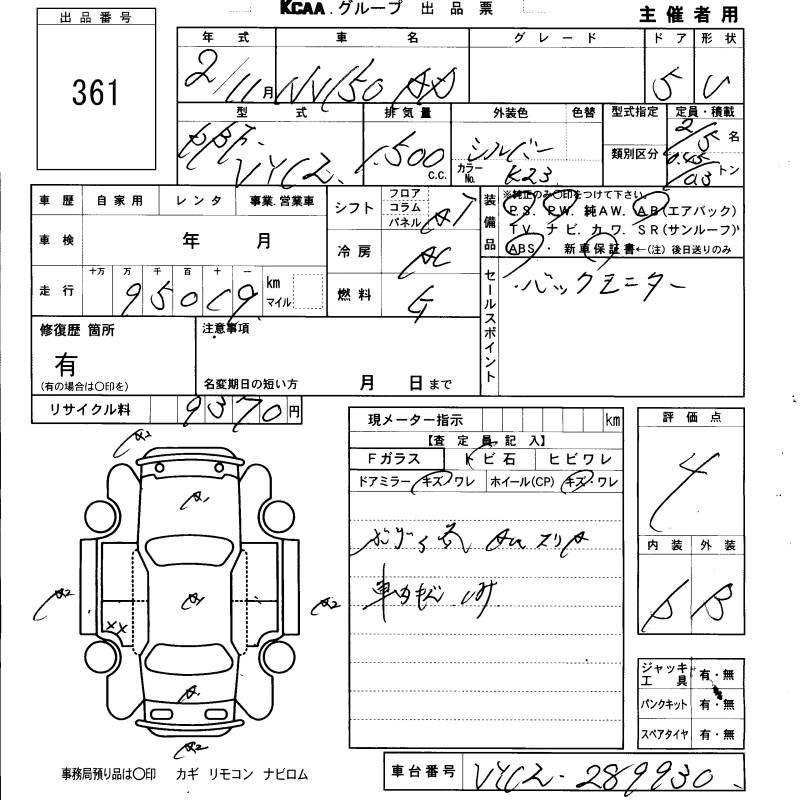 KCAA.グループ 出品票 主催者用
出品番号
361
年式 車名 グレード ドア 形状
2/11月 NV150 AD 5 V
型式 排気量 外装色 色替 型式指定 定員・積載
VYC12 1,500 c.c. シルバー カラーNo. K23 類別区分 2/5名
0.45/0.3トン
車歴 自家用 レンタ 事業.営業車
シフト フロア コラム パネル AT
装備品 ※純正のみ〇印をつけて下さい
P.S. P.W. 純AW. AB(エアバック)
TV. ナビ. カワ. SR(サンルーフ)
ABS. 新車保証書←(注)後日送りのみ
車検 年 月
冷房 AC
走行 十万 万 千 百 十 一 km マイル
9 5 0 1 9
燃料 G
セールスポイント
・バックモニター
修復歴 箇所
有
(有の場合は〇印を)
注意事項
名変期日の短い方 月 日まで
リサイクル料 9370円
現メーター指示 km
【査定員記入】
Fガラス トビ石 ヒビワレ
ドアミラー キズ/ワレ ホイール(CP) キズ・ワレ
評価点
4
内装 外装
B B
A2
A1
A2 A1 A2
XX
A1
A2
ジャッキ工具 有・無
パンクキット 有・無
スペアタイヤ 有・無
事務局預り品は〇印 カギ リモコン ナビロム
車台番号 VYC12-289930